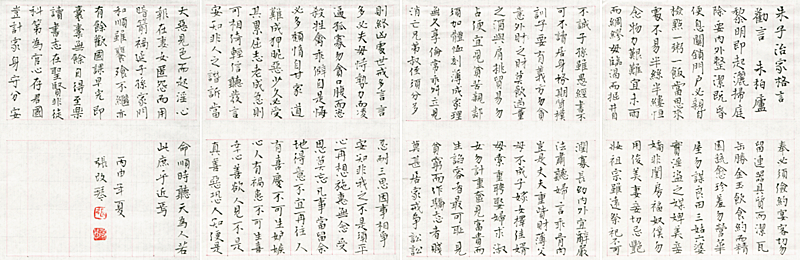 朱子治家格言
勸言 朱柏廬
黎明即起灑掃庭
除要内外整潔既昏
便息關鎖門户必親自
檢點一粥一飯當思來
處不易半絲半縷恒
念物力維艱宜未雨
而綢繆毋臨渴而掘井
奉必須儉約宴客切勿
留連器具質而潔瓦
缶勝金玉飲食約而精
園蔬愈珍羞勿營華
屋勿謀良田三姑六婆
實淫盜之媒婢美妾
嬌非閨房福奴僕勿
用俊美妻妾切忌艷
妝祖宗雖遠祭祀不可
不誠子孫雖愚經書不
可不讀居身務期質樸
訓子要有義方勿貪
意外之財莫飲過量
之酒與肩挑貿易勿
占便宜見貧苦親鄰
須加體恤刻薄成家理
無久享倫常乖舛立見
消亡兄弟叔侄須分多
潤寡長幼内外宜辭嚴
法肅聽婦言乖骨肉
豈是丈夫重資財薄父
母不成子嫁女擇佳婿
毋索重聘娶婦求淑
女勿計重奩見富貴而
生諂容者最可恥見
貧窮而作驕態者賤
莫甚居家戒爭訟訟
則終凶處世戒多言言
多必失毋恃勢力而凌
逼孤寡勿貪口腹而恣
殺牲禽乖僻自是悔
必多頹惰自甘家道
難成狎昵惡少久必受
其累屈志老成急則
可相倚輕信聽發言
安知非人之譖訴當
忍耐三思因事相爭
安知非我之不是須平
心再想施惠無念受
恩莫忘凡事當留餘
地得意不宜再往人
有喜慶不可生妒嫉
心人有禍患不可生喜
幸心善欲人見不是
真善惡恐人知便是
大惡見色而起淫心
報在妻女匿怨而用
暗箭禍延子孫家門
和順雖饔飧不繼亦
有餘歡國課早完即
囊橐無餘自得至樂
讀書志在聖賢非徒
科第為官心存君國
豈計家身守分安
命順時聽天為人若
此庶乎近焉
丙申年夏
張改琴